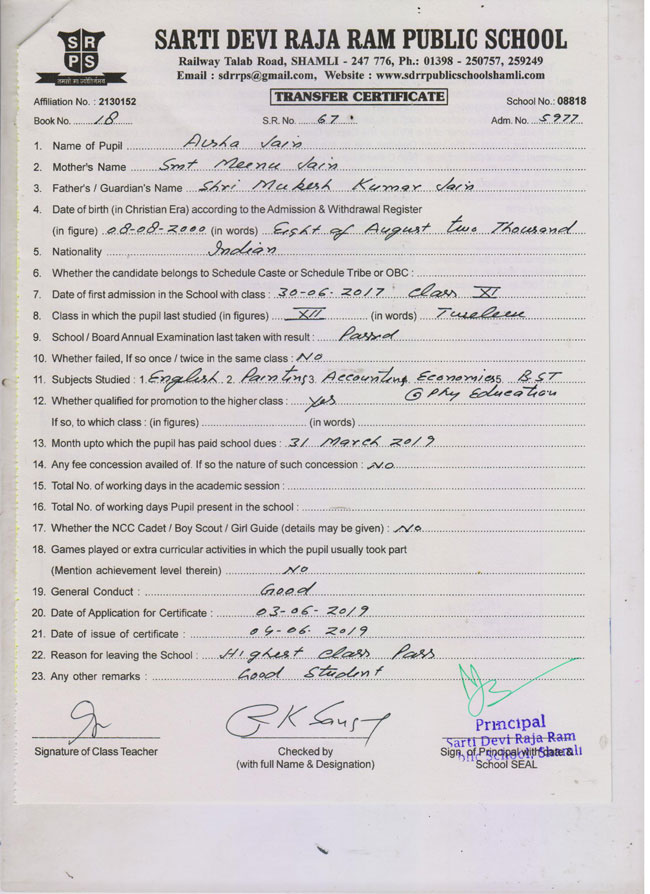 SRPS
SARTI DEVI RAJA RAM PUBLIC SCHOOL
Railway Talab Road, SHAMLI - 247 776, Ph.: 01398 - 250757, 259249
Email : sdrrps@gmail.com, Website : www.sdrrpublicschoolshamli.com
Affiliation No. : 2130152 TRANSFER CERTIFICATE School No.: 08818
Book No. 18 S.R. No. 67 Adm. No. 5977
1. Name of Pupil Jain
2. Mother's Name Smt Meenu Jain
3. Father's / Guardian's Name Shri Mukesh Kumar Jain
4. Date of birth (in Christian Era) according to the Admission & Withdrawal Register
(in figure) 08-08-2000 (in words) Eight of August two Thousand
5. Nationality Indian
6. Whether the candidate belongs to Schedule Caste or Schedule Tribe or OBC :
7. Date of first admission in the School with class : 30-06-2017 Class XI
8. Class in which the pupil last studied (in figures) XII (in words)
9. School / Board Annual Examination last taken with result : Passed
10. Whether failed, If so once / twice in the same class : No
11. Subjects Studied : 1. English 2. Painting 3. Accounting 4. Economics 5. BST
6 Phy Education
12. Whether qualified for promotion to the higher class : Yes
If so, to which class : (in figures) (in words)
13. Month upto which the pupil has paid school dues : 31 March 2019
14. Any fee concession availed of. If so the nature of such concession : No
15. Total No. of working days in the academic session :
16. Total No. of working days Pupil present in the school :
17. Whether the NCC Cadet / Boy Scout / Girl Guide (details may be given) : No
18. Games played or extra curricular activities in which the pupil usually took part
(Mention achievement level therein) No
19. General Conduct : Good
20. Date of Application for Certificate : 03-06-2019
21. Date of issue of certificate : 04-06-2019
22. Reason for leaving the School : Highest Class Pass
23. Any other remarks : Good Student
Principal
Sarti Devi Raja Ram
Public School, Shamli
Signature of Class Teacher Checked by Sign. of Principal with date &
(with full Name & Designation) School SEAL